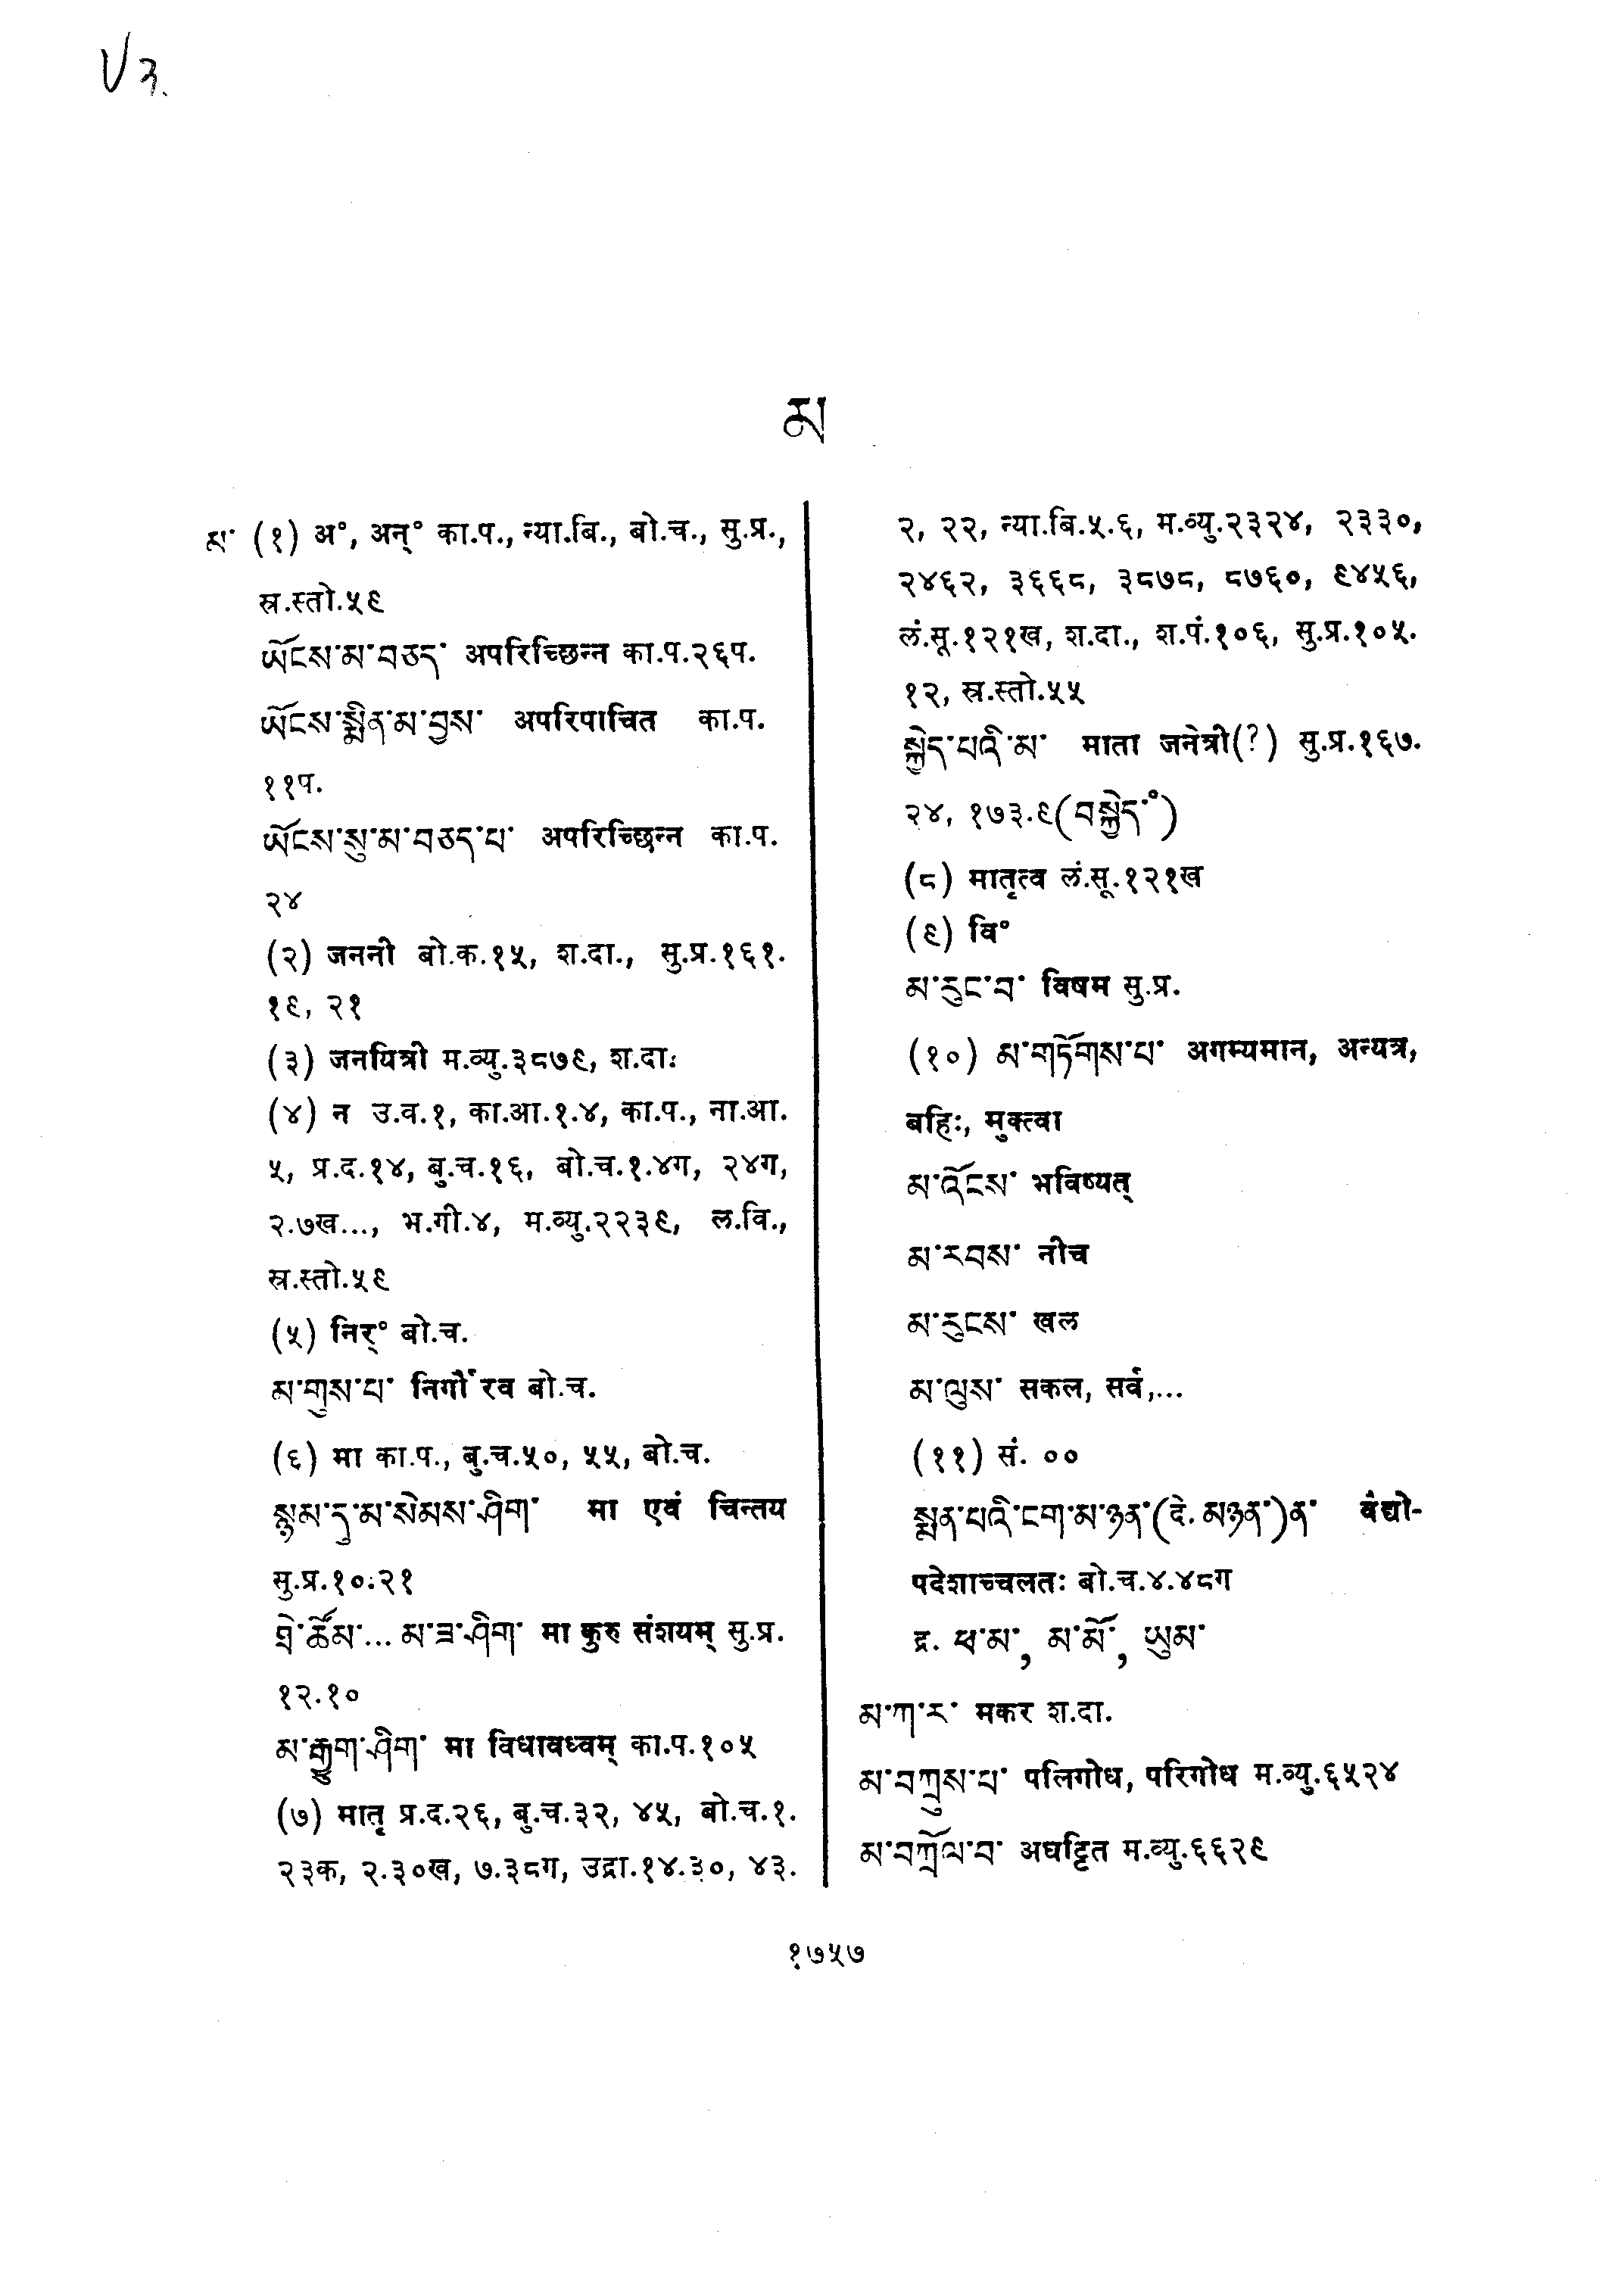 V3.
མ
མ་ (१) अ°, अन्° का.प., न्या.बि., बो.च., सु.प्र.,
स्र.स्तो.५९
ཡོངས་མ་བཅད་ अपरिच्छिन्न का.प.२६प.
ཡོངས་སྨིན་མ་བྱས་ अपरिपाचित का.प.
११प.
ཡོངས་སུ་མ་བཅད་པ་ अपरिच्छिन्न का.प.
२४
(२) जननी बो.क.१५, श.दा., सु.प्र.१६१.
१९, २१
(३) जनयित्री म.व्यु.३८७९, श.दा.
(४) न उ.व.१, का.आ.१.४, का.प., ना.आ.
५, प्र.द.१४, बु.च.१६, बो.च.१.४ग, २४ग,
२.७ख..., भ.गी.४, म.व्यु.२२३९, ल.वि.,
स्र.स्तो.५९
(५) निर्° बो.च.
མ་གུས་པ་ निर्गौरव बो.च.
(६) मा का.प., बु.च.५०, ५५, बो.च.
སྙམ་དུ་མ་སེམས་ཤིག་ मा एवं चिन्तय
सु.प्र.१०.२१
ཐེ་ཚོམ་... མ་ཟ་ཤིག་ मा कुरु संशयम् सु.प्र.
१२.१०
མ་རྒྱུག་ཤིག་ मा विधावध्वम् का.प.१०५
(७) मातृ प्र.द.२६, बु.च.३२, ४५, बो.च.१.
२३क, २.३०ख, ७.३८ग, उद्रा.१४.३०, ४३.
२, २२, न्या.बि.५.६, म.व्यु.२३२४, २३३०,
२४६२, ३६६८, ३८७८, ८७६०, ९४५६,
लं.सू.१२१ख, श.दा., श.पं.१०६, सु.प्र.१०५.
१२, स्र.स्तो.५५
སྐྱེད་པའི་མ་ माता जनेत्री(?) सु.प्र.१६७.
२४, १७३.९(བསྐྱེད་°)
(८) मातृत्व लं.सू.१२१ख
(९) वि°
མ་རུང་བ་ विषम सु.प्र.
(१०) མ་གཏོགས་པ་ अगम्यमान, अन्यत्र,
बहिः, मुक्त्वा
མ་འོངས་ भविष्यत्
མ་རབས་ नीच
མ་རུངས་ खल
མ་ལུས་ सकल, सर्व,...
(११) सं. ००
སྨན་པའི་ངག་མ་ཉན་(दे. མཉན་)ན་ वैद्यो-
पदेशाच्चलतः बो.च.४.४८ग
द्र. ཕ་མ་, མ་མོ་, ཡུམ་
མ་ཀ་ར་ मकर श.दा.
མ་བཀྲུས་པ་ पलिगोध, परिगोध म.व्यु.६५२४
མ་བཀྲོལ་བ་ अघट्टित म.व्यु.६६२९
१७५७